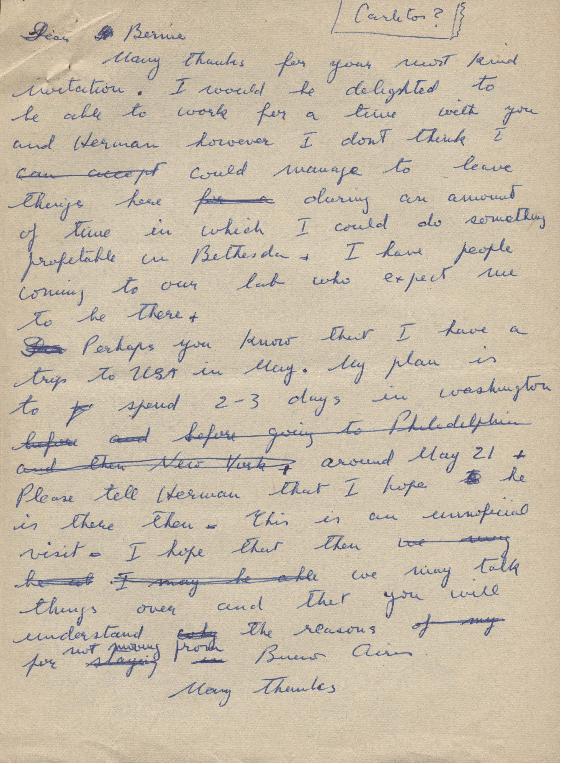 Carlitos?
Dear Bernie
Many thanks for your most kind
invitation. I would be delighted to
be able to work for a time with you
and Herman however I dont think I
can accept could manage to leave
things here for a during an amount
of time in which I could do something
profitable in Bethesda + I have people
coming to our lab who expect me
to be there +
Perhaps you know that I have a
trip to USA in May. My plan is
to spend 2-3 days in washington
before and before going to Philadelphia
and then New York + around May 21 +
Please tell Herman that I hope he
is there then. This is an unnoficial
visit. I hope that then we may
I may be able we may talk
things over and that you will
understand the reasons of my
for not moving from
staying in Buenos Aires.
Many thanks